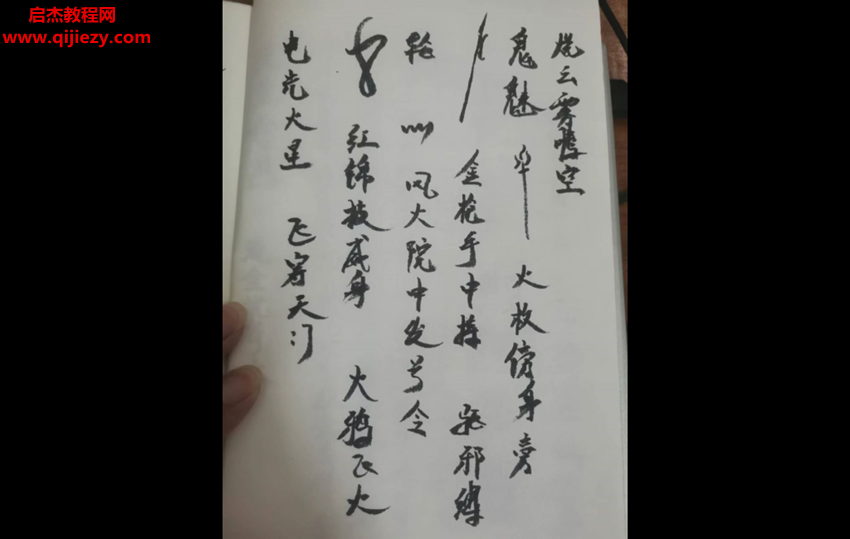 启杰教程网
www.qijiezy.com
烧云雾噜空
鬼魅 火枚傍身旁
金花手中捧 驱邪缚
轮 风火院中发号令
红锦披威身 火鸦飞火
电光火星 飞穿天门